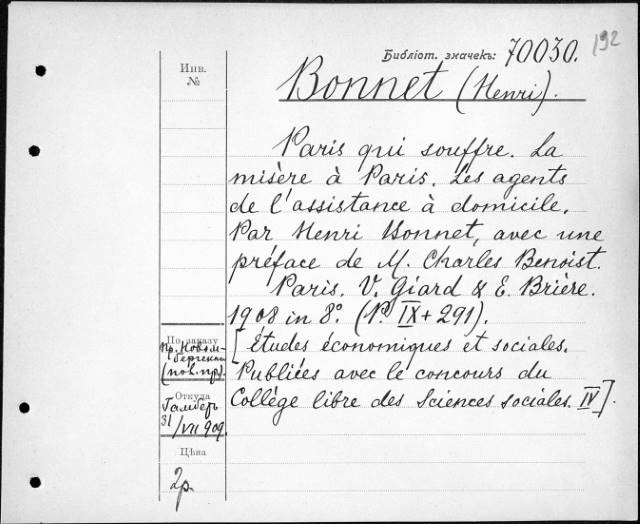 Библіот. значекъ: 70030. 192
Инв.
№
Bonnet (Henri).
Paris qui souffre. La
misère à Paris. Les agents
de l'assistance à domicile.
Par Henri Bonnet, avec une
préface de M. Charles Benoist.
Paris. V. Giard & E. Brière.
1908 in 8°. (P. IX + 291).
[Études économiques et sociales.
Publiées avec le concours du
Collège libre des Sciences sociales. IV].
По заказу
пр. Новом-
бергскаго
(нов. пр.).
Откуда
Гамберъ
31/VII 909.
Цѣна
2р.